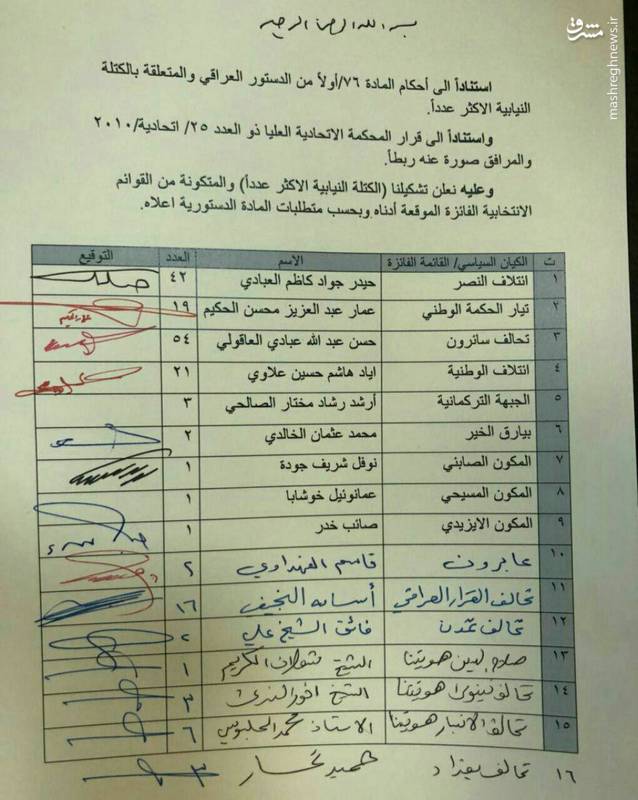 بسم الله الرحمن الرحيم
مشرق
mashreghnews.ir
استناداً الى أحكام المادة ٧٦/أولاً من الدستور العراقي والمتعلقة بالكتلة
النيابية الاكثر عدداً.
واستناداً الى قرار المحكمة الاتحادية العليا ذو العدد ٢٥/ اتحادية/٢٠١٠
والمرافق صورة عنه ربطاً.
وعليه نعلن تشكيلنا (الكتلة النيابية الاكثر عدداً) والمتكونة من القوائم
الانتخابية الفائزة الموقعة أدناه وبحسب متطلبات المادة الدستورية اعلاه.
ت الكيان السياسي/ القائمة الفائزة الاسم العدد التوقيع
١ ائتلاف النصر حيدر جواد كاظم العبادي ٤٢
٢ تيار الحكمة الوطني عمار عبد العزيز محسن الحكيم ١٩
٣ تحالف سائرون حسن عبد الله عبادي العاقولي ٥٤
٤ ائتلاف الوطنية اياد هاشم حسين علاوي ٢١
٥ الجبهة التركمانية أرشد رشاد مختار الصالحي ٣
٦ بيارق الخير محمد عثمان الخالدي ٢
٧ المكون الصابئي نوفل شريف جودة ١
٨ المكون المسيحي عمانوئيل خوشابا ١
٩ المكون الايزيدي صائب خدر ١
١٠ عابرون قاسم الفهداوي ٢
١١ تحالف القرار العراقي أسامه النجيفي ١٦
١٢ تحالف تمدن فائق الشيخ علي ٢
١٣ صلاح الدين هويتنا الشيخ الكريم ١
١٤ تحالف نينوى هويتنا الشيخ ٣
١٥ تحالف الانبار هويتنا الاستاذ محمد الحلبوسي ٦
١٦ تحالف بغداد ٣